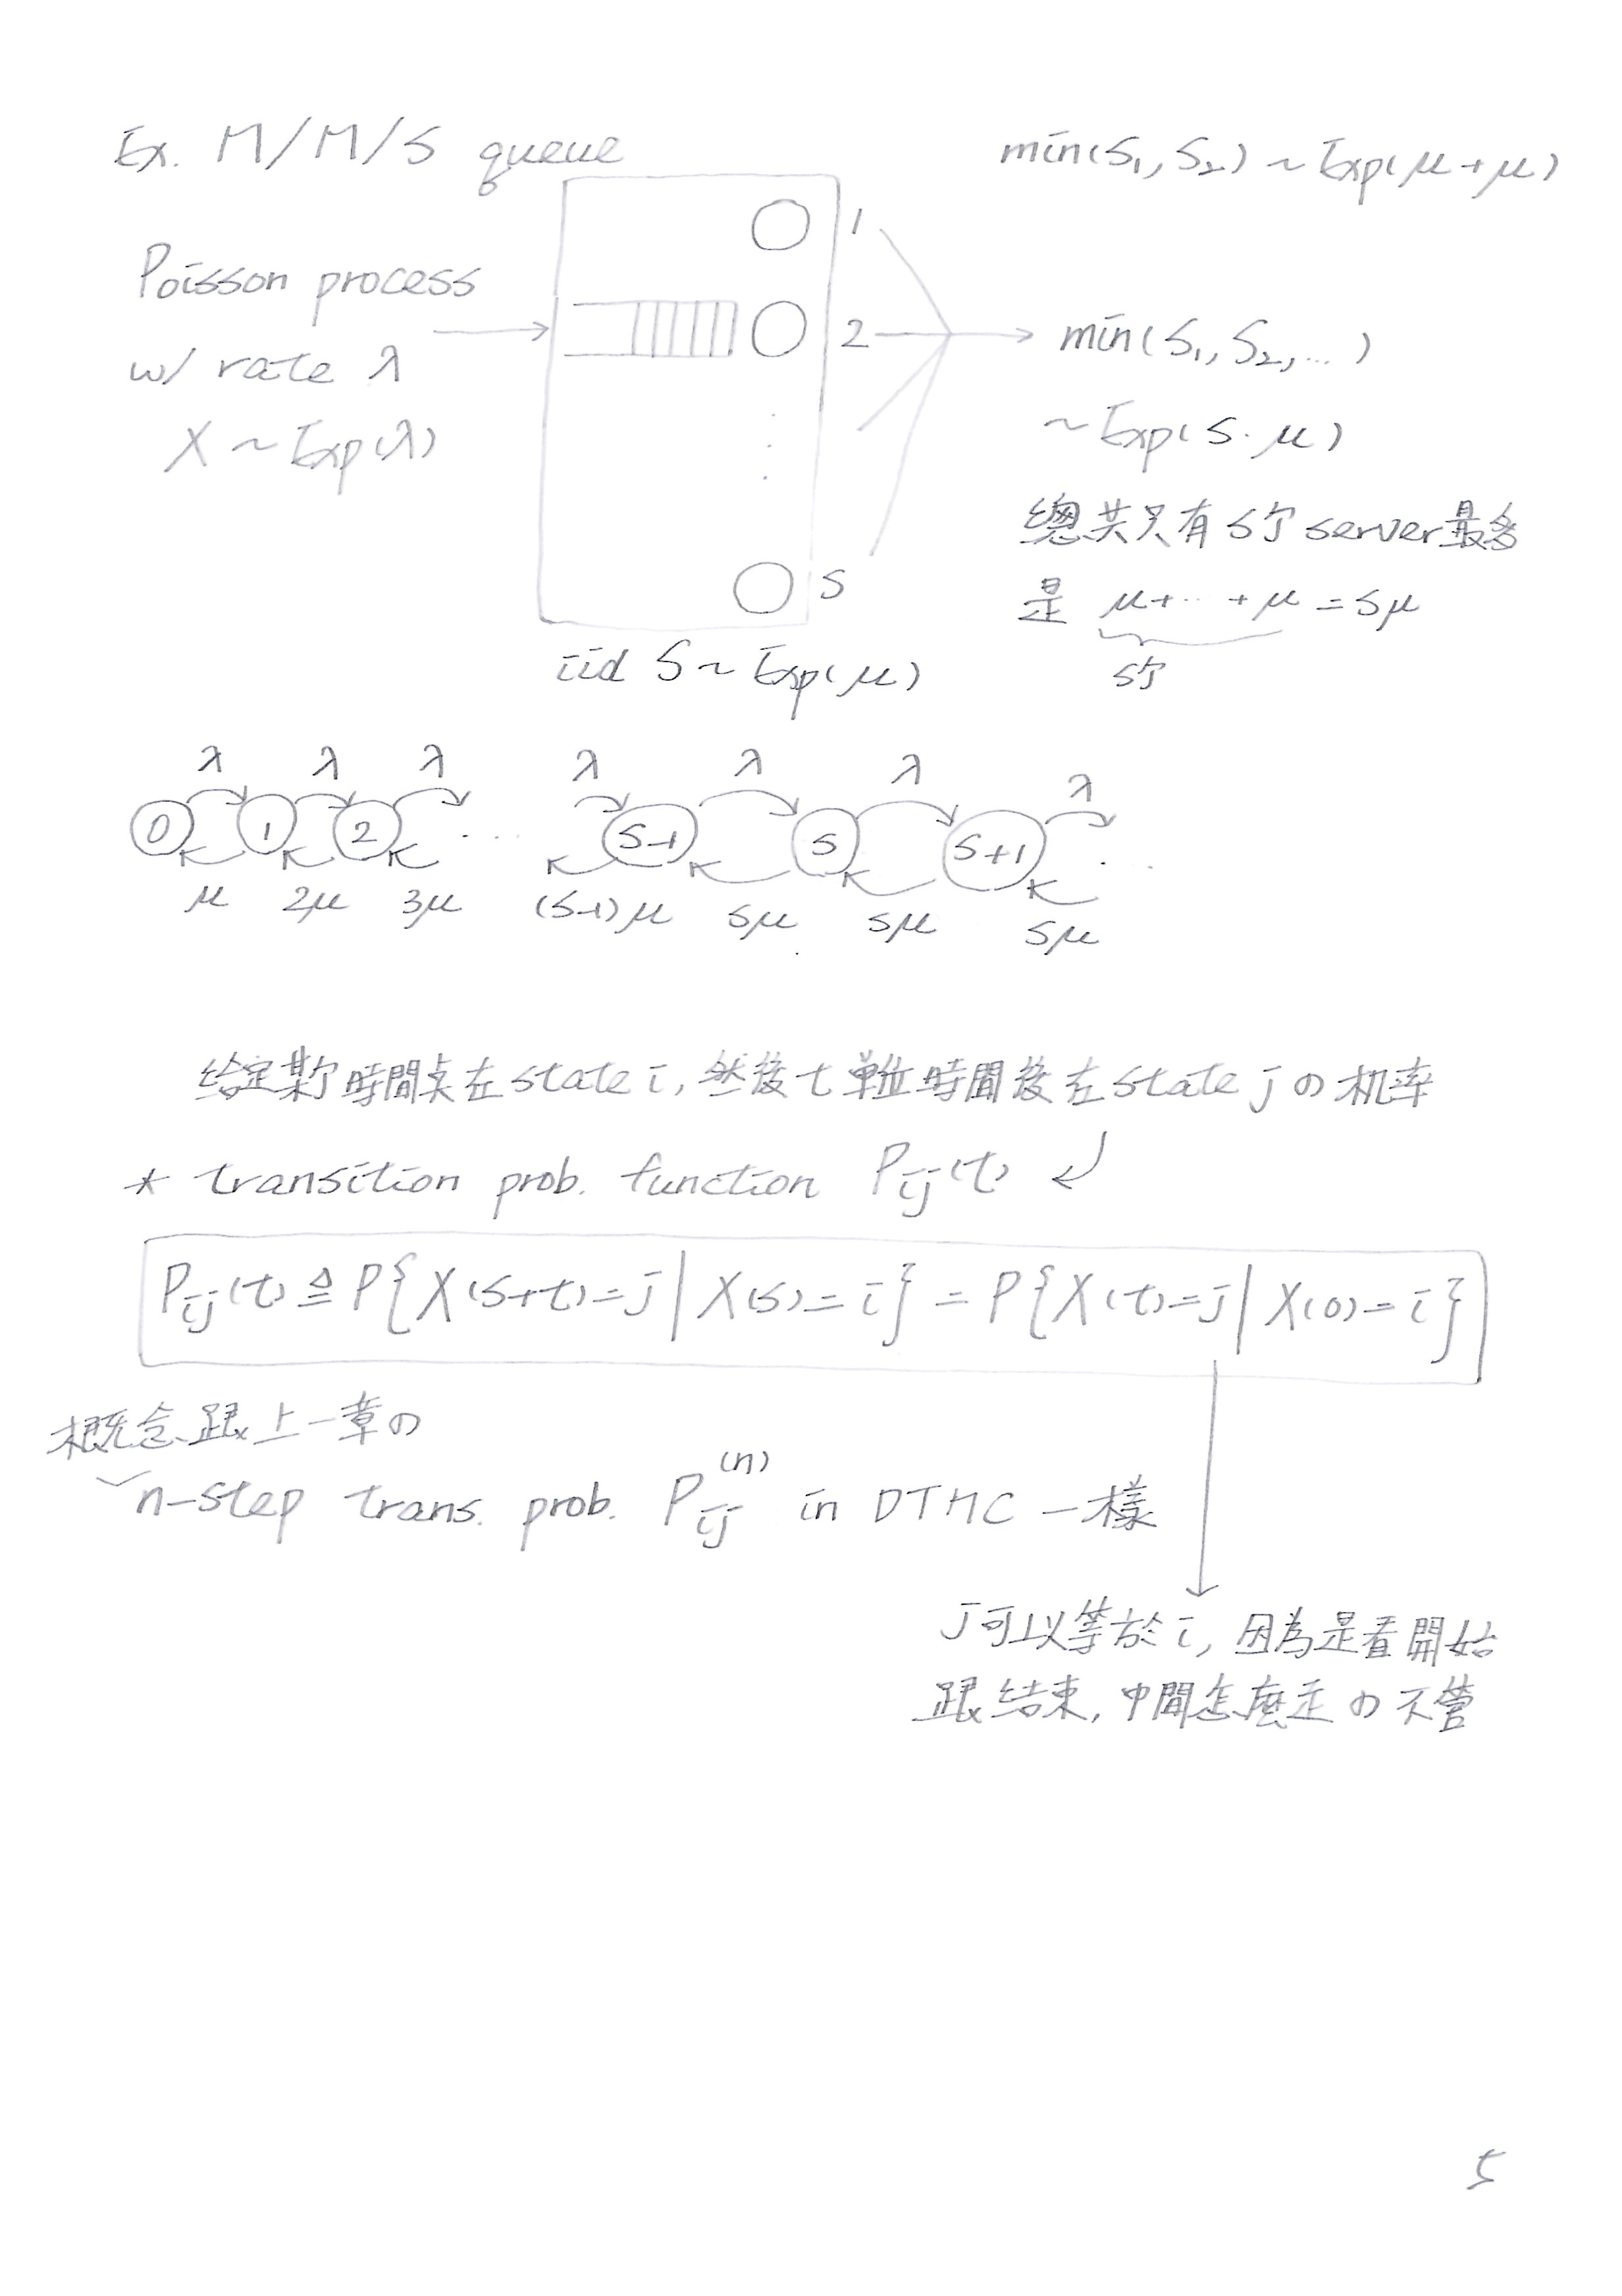 Ex. M/M/S queue
min(S₁, S₂) ~ Exp(μ+μ)
Poisson process
w/ rate λ
X ~ Exp(λ)
1
2
⋮
S
min(S₁, S₂, …)
~ Exp(S·μ)
總共只有S个server最多
是 μ+…+μ = Sμ
S个
iid S ~ Exp(μ)
λ λ λ λ λ λ λ
0 1 2 … S-1 S S+1 …
μ 2μ 3μ (S-1)μ Sμ Sμ Sμ
给定某个時間点在state i, 然後t單位時間後在state j の机率
* transition prob. function Pij(t)
Pij(t) ≜ P{X(s+t)=j | X(s)=i} = P{X(t)=j | X(0)=i}
概念跟上一章の
n-step trans. prob. Pij⁽ⁿ⁾ in DTMC 一樣
j可以等於i, 因為是看開始
跟结束, 中間怎麼走の不管
5